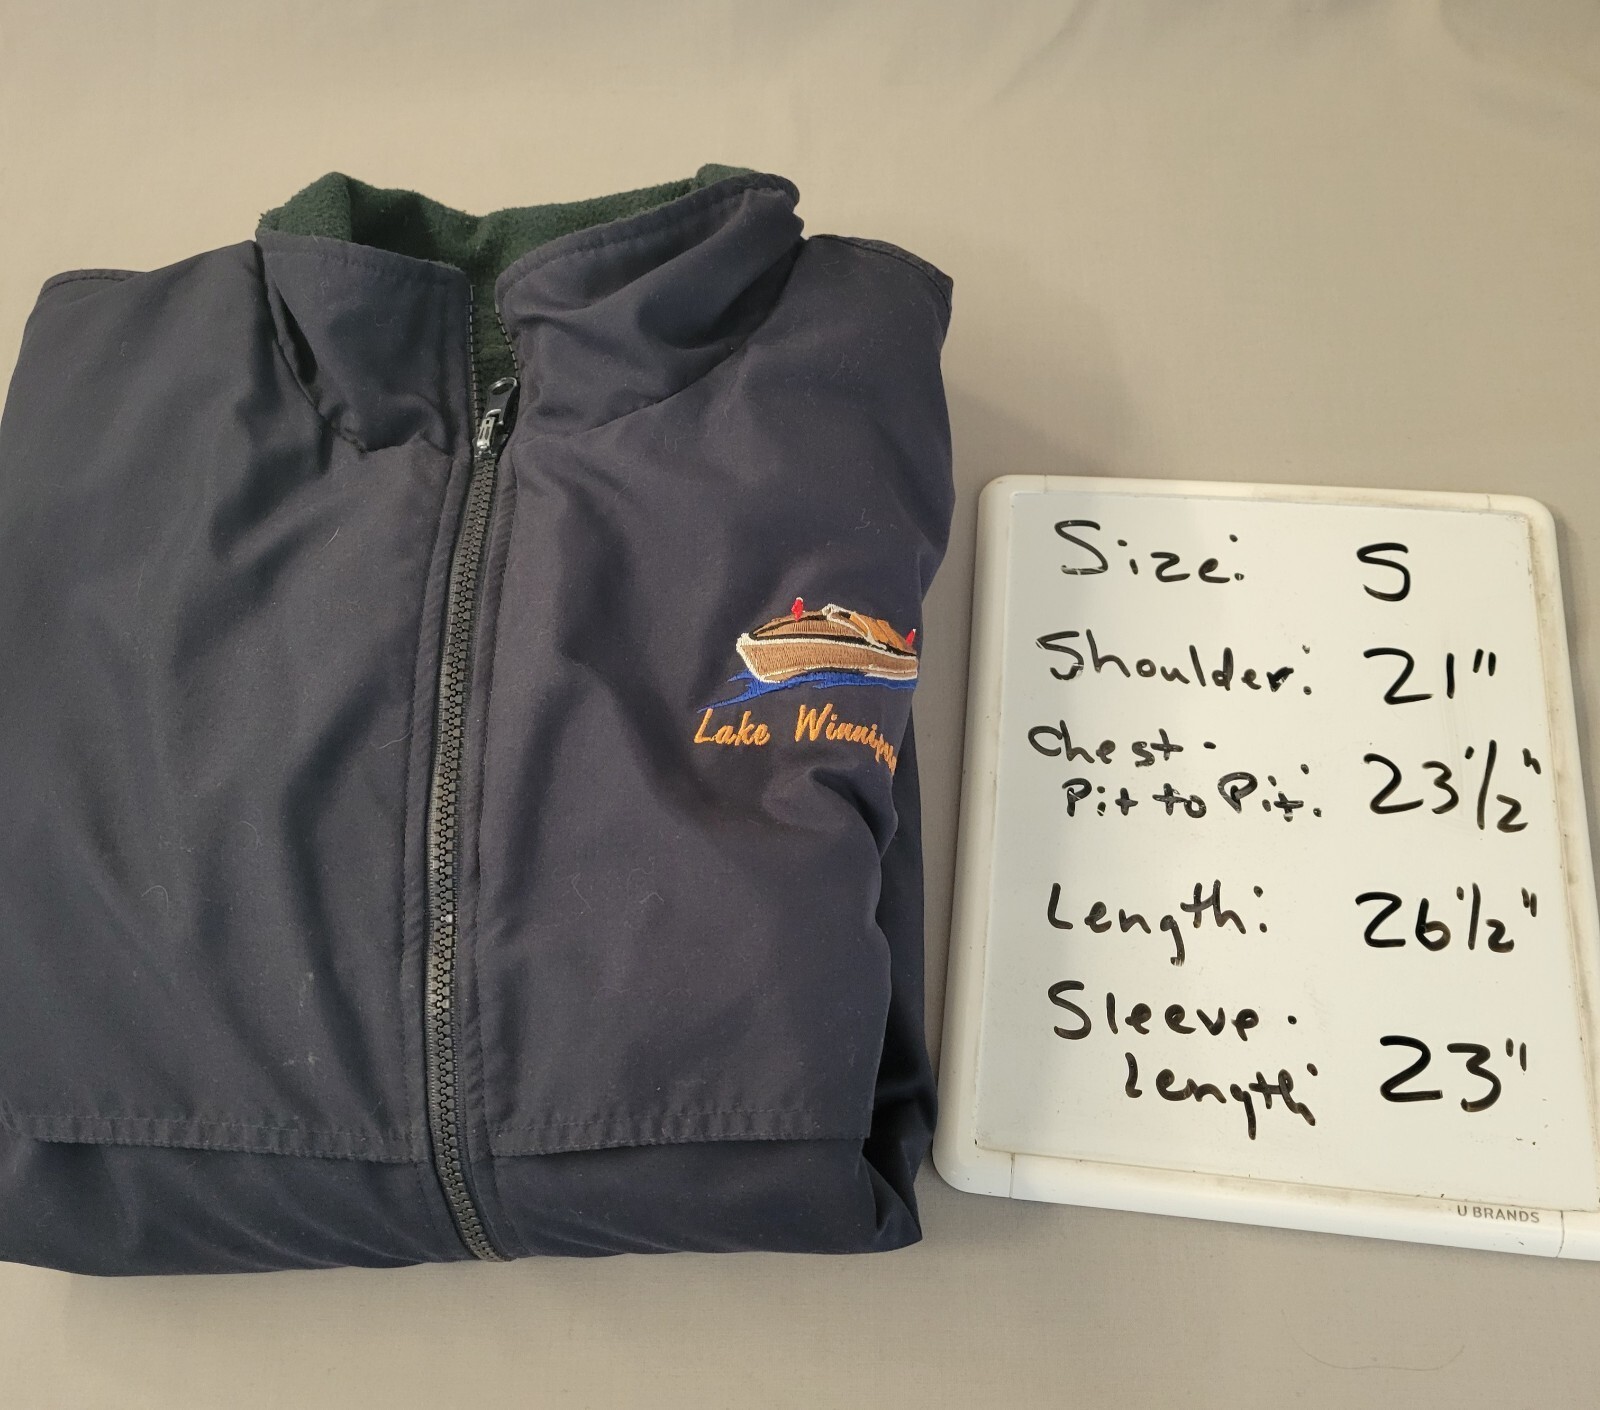 Lake
Size: S
Shoulder: 21"
Chest-
Pit to Pit: 23 1/2"
Length: 26 1/2"
Sleeve-
Length: 23"
U BRANDS